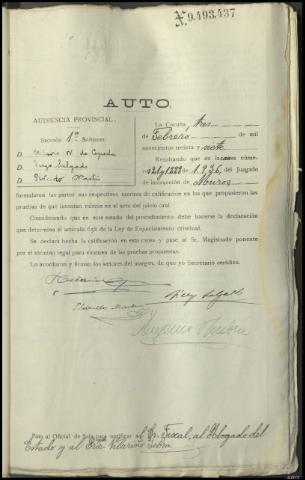 N.9.493.437
AUTO.
AUDIENCIA PROVINCIAL.
Sección 1ª Señores:
D.
D. Diego Salgado
D.
La Coruña, tres
de Febrero, de mil
novecientos treinta y siete
Resultando que en la causa núme-
de 1.936, del Juzgado
de instrucción de Muros,
formularon las partes sus respectivos escritos de calificación en los que propusieron las
pruebas de que intentan valerse en el acto del juicio oral.
Considerando que en este estado del procedimiento debe hacerse la declaración
que determina el artículo 658 de la Ley de Enjuiciamiento criminal.
Se declara hecha la calificación en esta causa y pase al Sr. Magistrado ponente
por el término legal para examen de las pruebas propuestas.
Lo acordaron y firman los señores del margen, de que yo Secretario certifico.
Diego Salgado
Pase al Oficial de Sala para notificar al Sr. Fiscal, al Abogado del
Estado y al